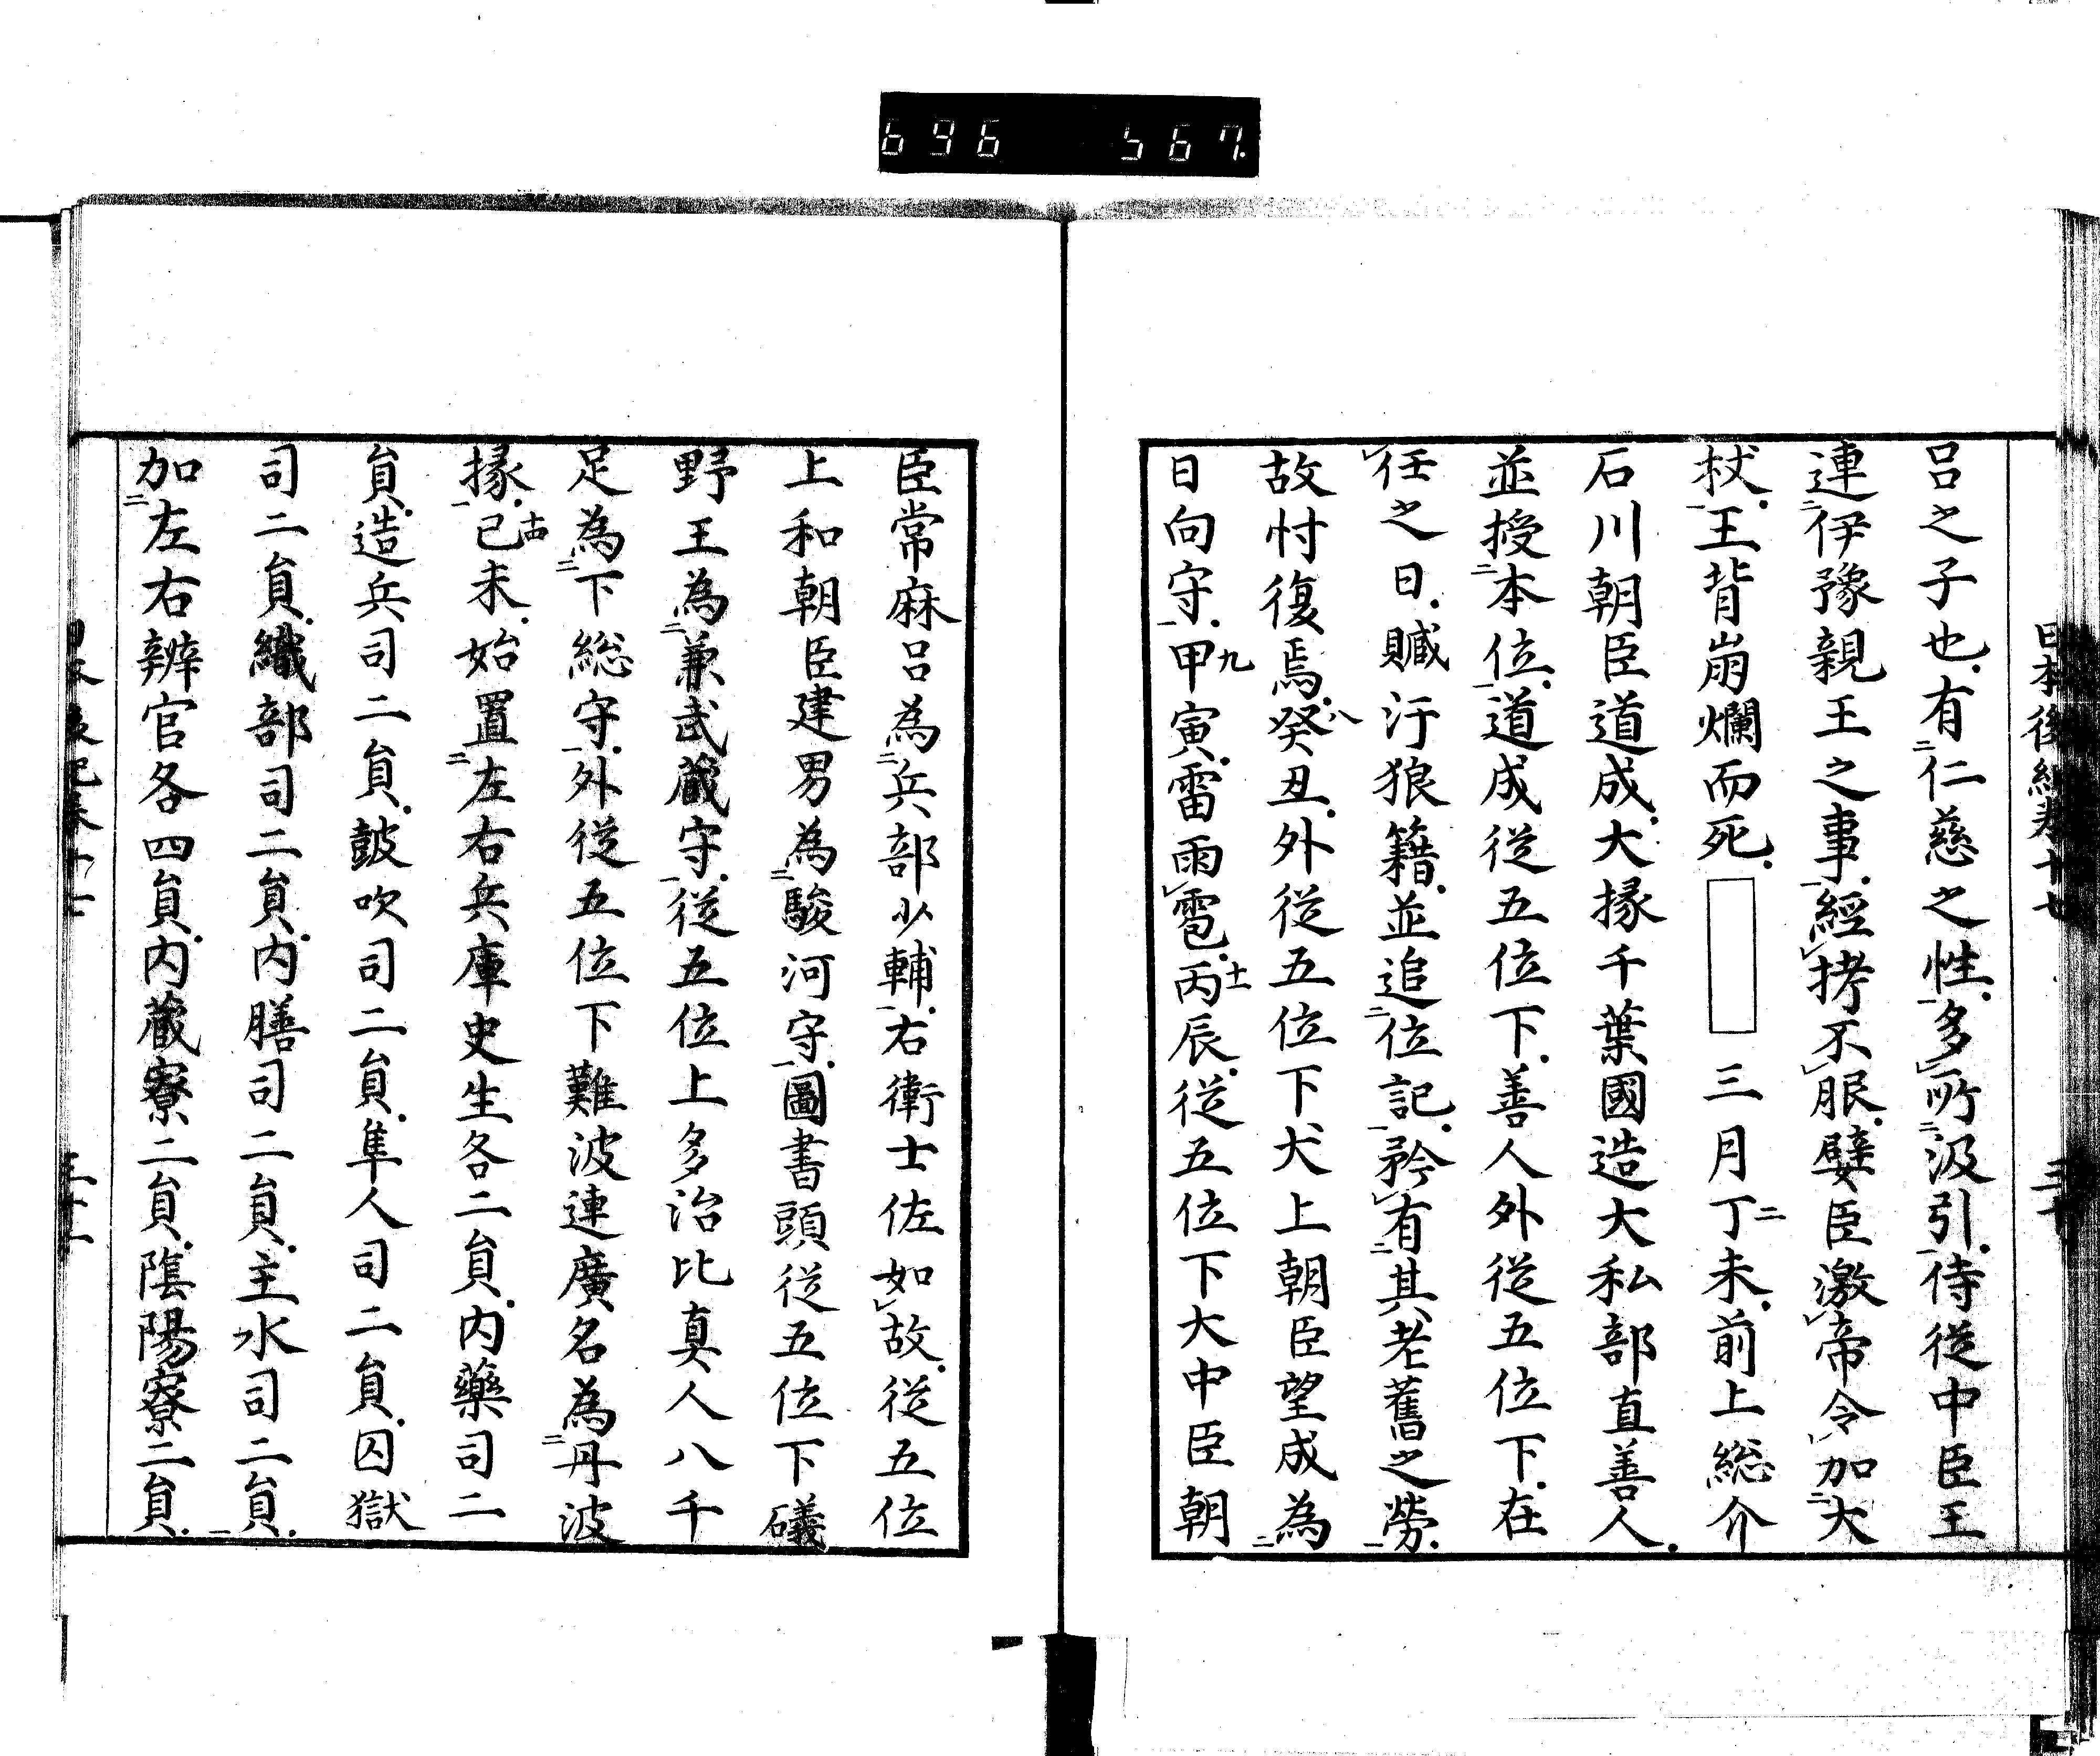 696 567.
日本後紀卷十七 三十
呂之子也有二仁慈之性一多レ所二汲引一侍従中臣王
連二伊豫親王之事一經レ拷不レ服嬖臣激レ帝令レ加二大
杖一王背崩爛而死 三月丁二未前上総介
石川朝臣道成大掾千葉國造大私部直善人
並授二本位一道成従五位下善人外従五位下在
レ任之日贓汙狼籍並追二位記一矜レ有二其老舊之勞一
故忖復焉癸八丑外従五位下犬上朝臣望成為二
日向守一甲九寅雷雨レ雹丙十一辰従五位下大中臣朝
臣常麻呂為二兵部少輔一右衛士佐如レ故従五位
上和朝臣建男為二駿河守一圖書頭従五位下礒
野王為二兼武蔵守一従五位上多治比真人八千
足為二下総守一外従五位下難波連廣名為二丹波
掾一己十四未始置二左右兵庫史生各二員内藥司二
員造兵司二員鼓吹司二員隼人司二員囚獄
司二員織部司二員内膳司二員主水司二員一
加二左右辨官各四員内蔵寮二員陰陽寮二員